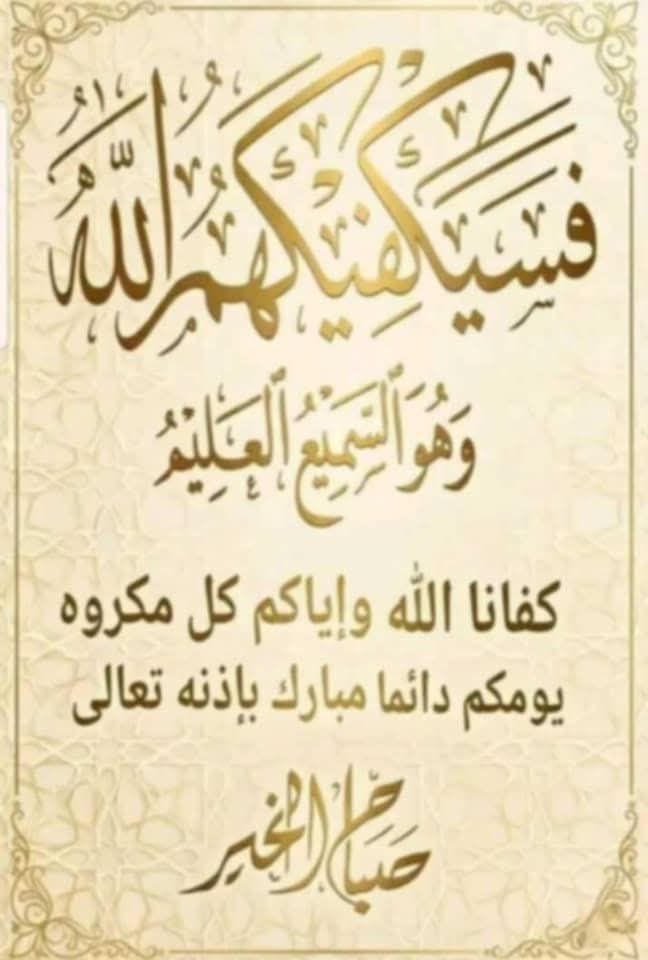 فَسَيَكْفِيْكَهُمُ اللّٰهُ
وَهُوَ ٱلسَّمِيْعُ ٱلْعَلِيْمُ
كفانا الله وإياكم كل مكروه
يومكم دائما مبارك بإذنه تعالى
صباح الخير